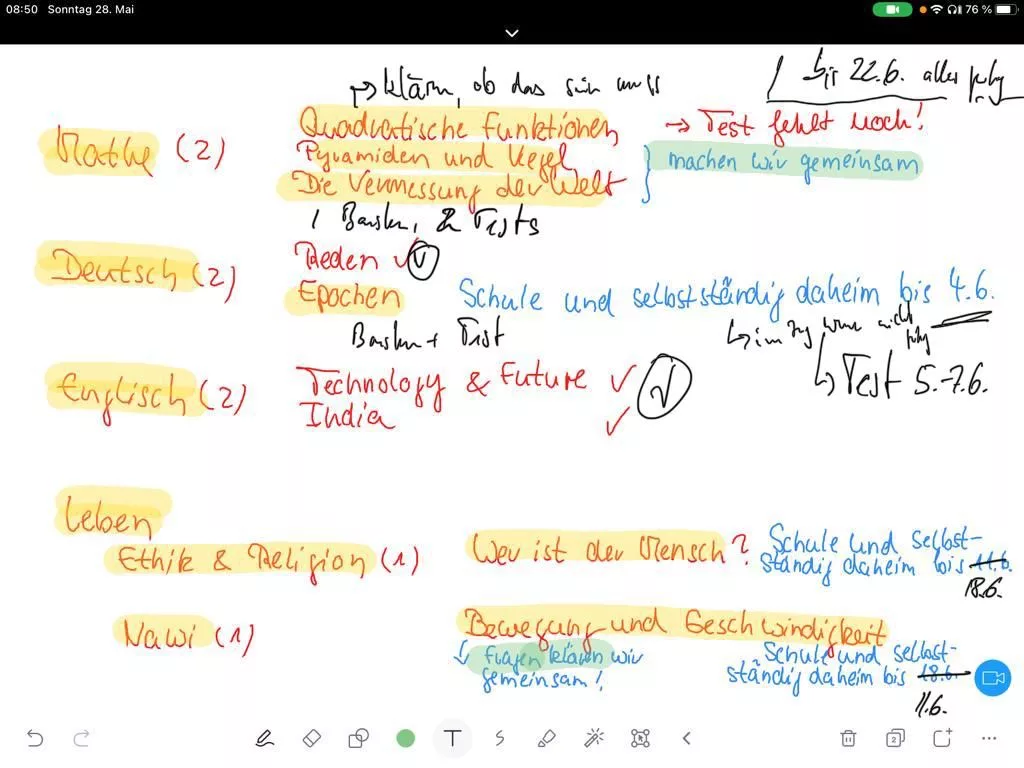 08:50 Sonntag 28. Mai
76 %
→ klären, ob das sein muss
bis 22.6. alles fertig
Mathe (2)
Quadratische Funktionen
→ Test fehlt noch!
Pyramiden und Kegel
machen wir gemeinsam
Die Vermessung der Welt
1 Baustein, 2 Tests
Deutsch (2)
Reden ✓
Epochen
Schule und selbstständig daheim bis 4.6.
Baustein + Test
↳ im
↳ Test 5.-7.6.
Englisch (2)
Technology & Future ✓
India ✓
Leben
Ethik & Religion (1)
Wer ist der Mensch?
Schule und selbst-
ständig daheim bis 11.6.
18.6.
Nawi (1)
Bewegung und Geschwindigkeit
↓ Fragen klären wir
gemeinsam!
Schule und selbst-
ständig daheim bis 18.6.
11.6.
T
2